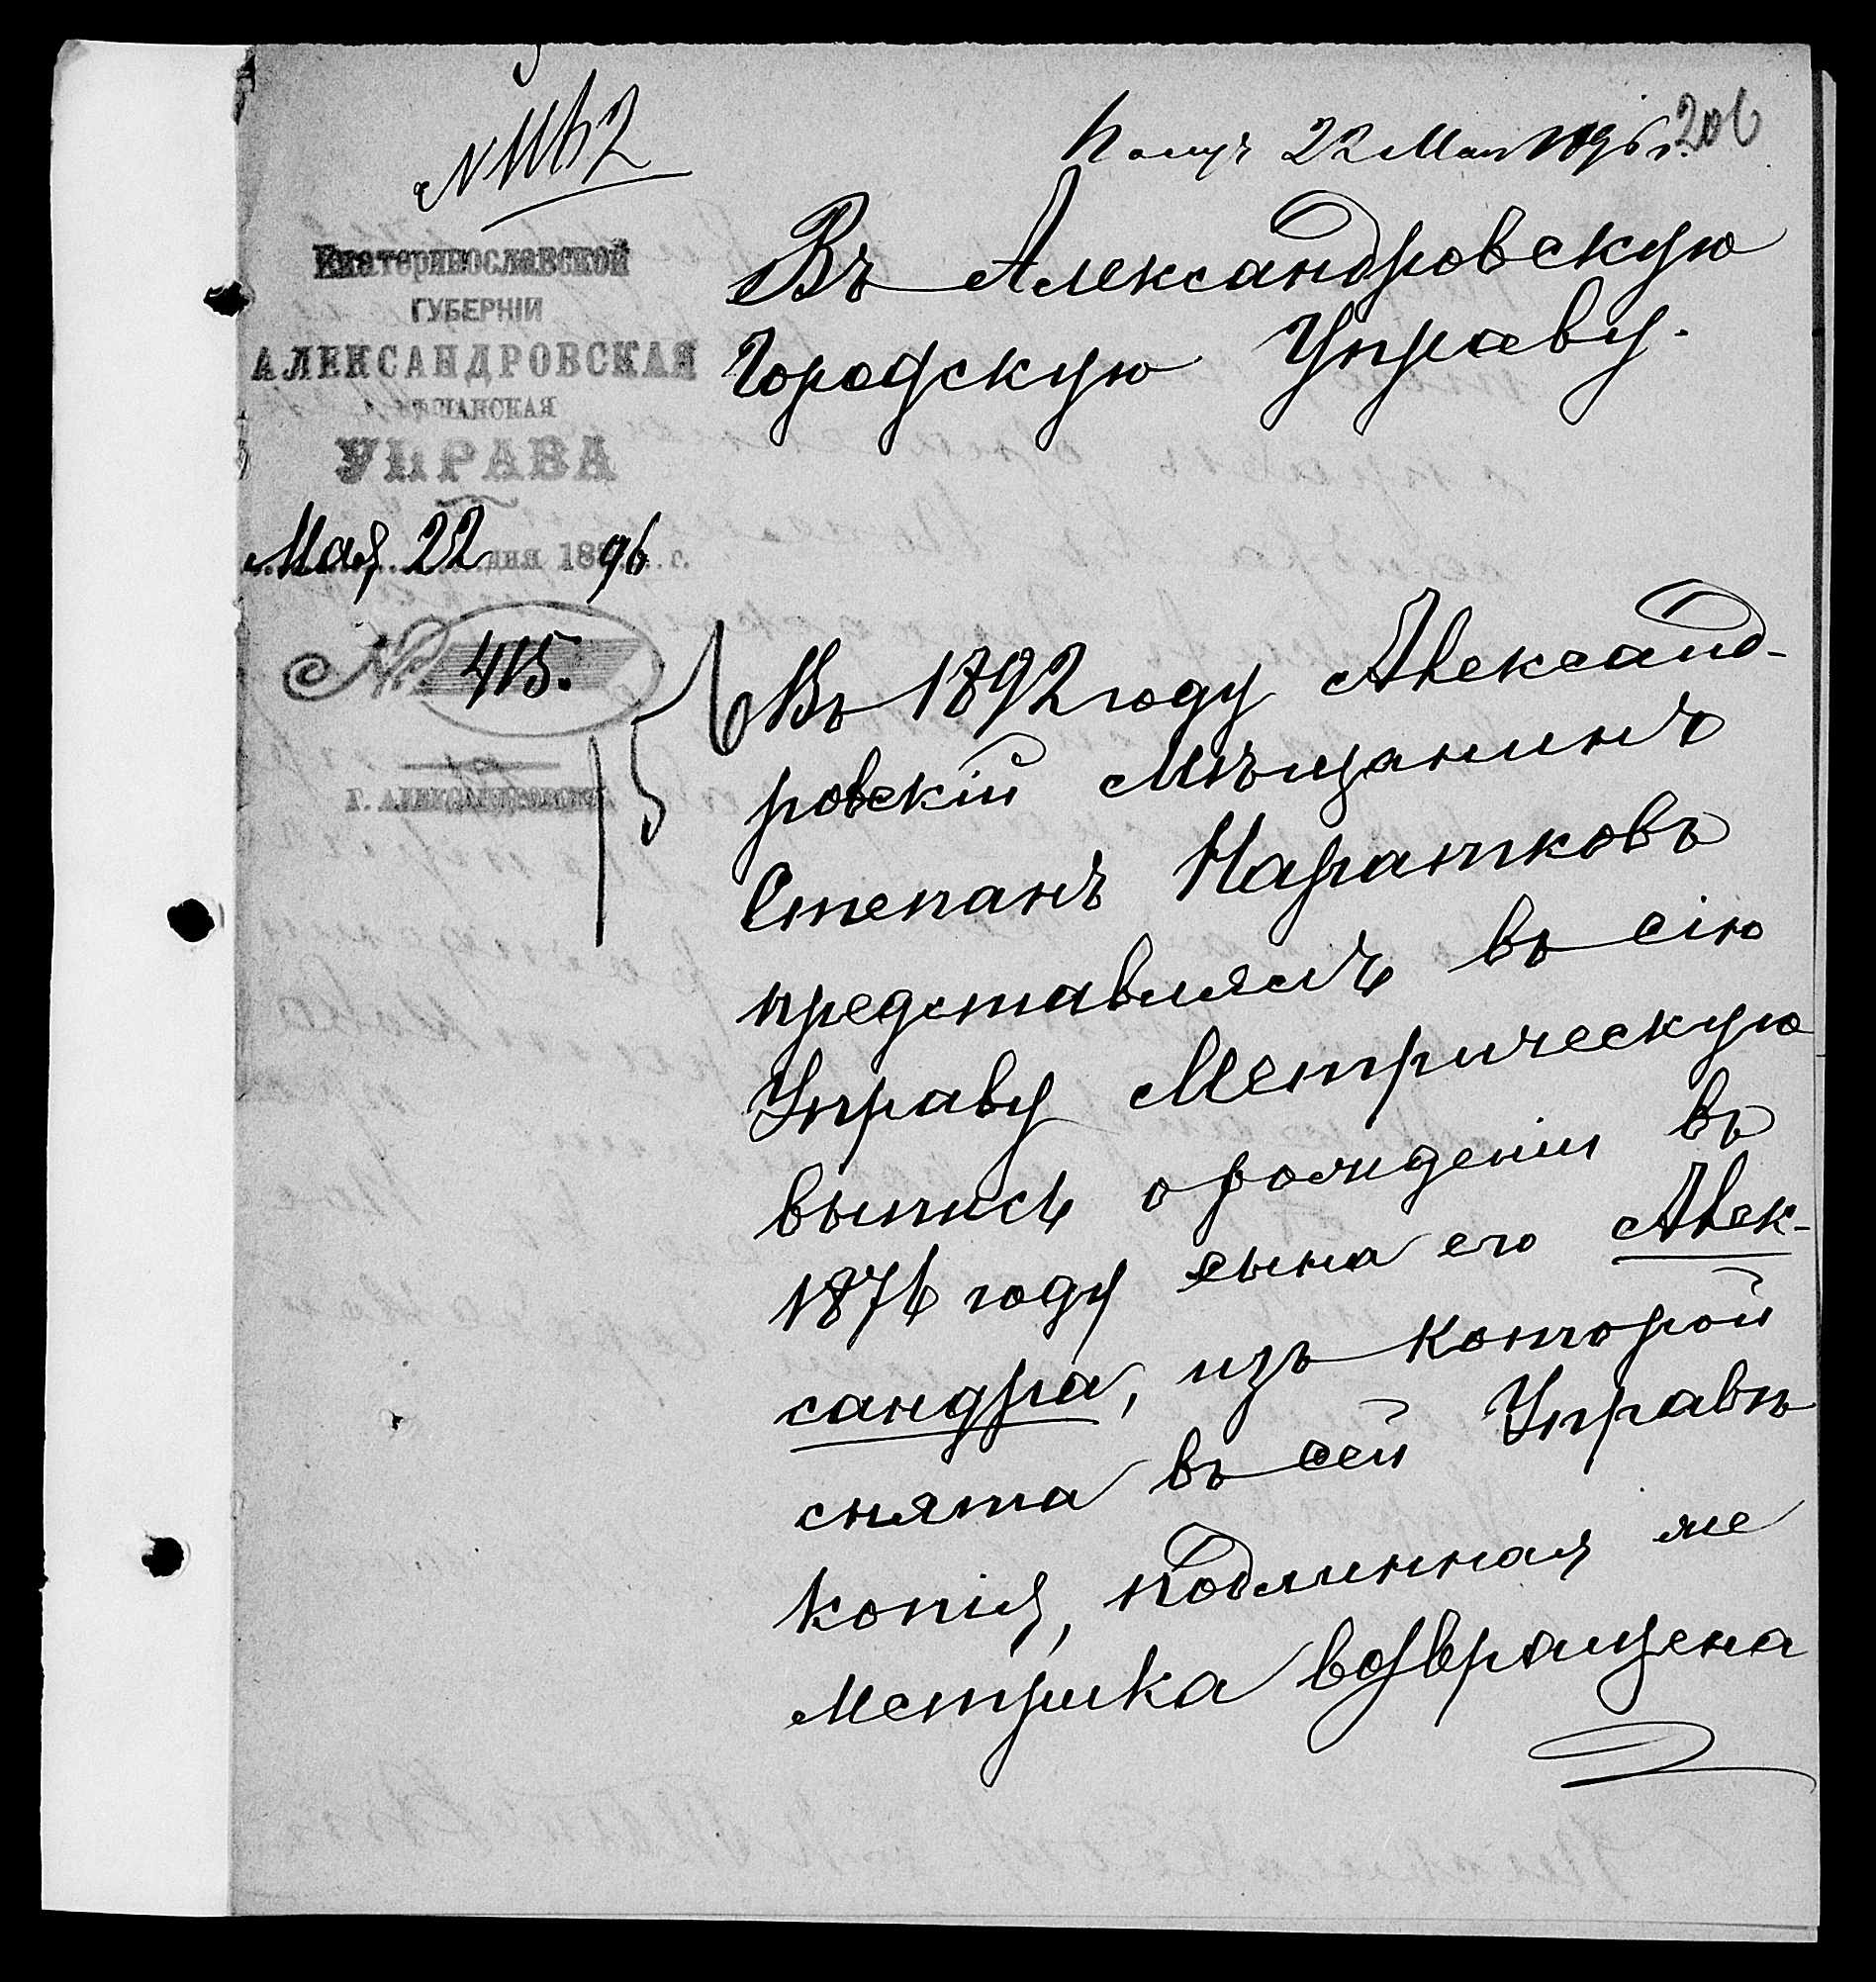 № 1162
Получ 22 Мая 1896 г. 206
Екатеринославской
ГУБЕРНІИ
АЛЕКСАНДРОВСКАЯ
МѢЩАНСКАЯ
УПРАВА
Мая 22 дня 1896 г.
№ 415.
Г. АЛЕКСАНДРОВСКЪ
Въ Александровскую
Городскую Управу.
15
Въ 1892 году Александ-
ровскій Мѣщанинъ
Степанъ Каратковъ
представлялъ въ сію
Управу Метрическую
выпись о рожденіи въ
1876 году сына его Алек-
сандра, изъ которой
снята въ сей Управѣ
копія, подлинная же
метрика возвращена